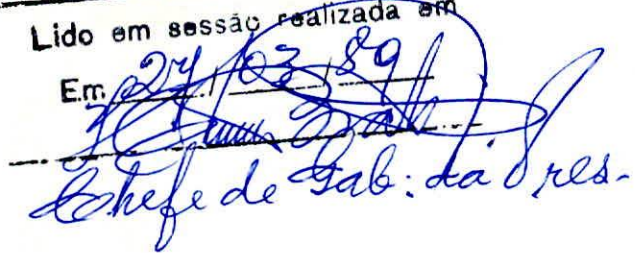 Lido em sessão realizada em
Em, 27 / 03 / 89
Chefe de Gab: da Pres-